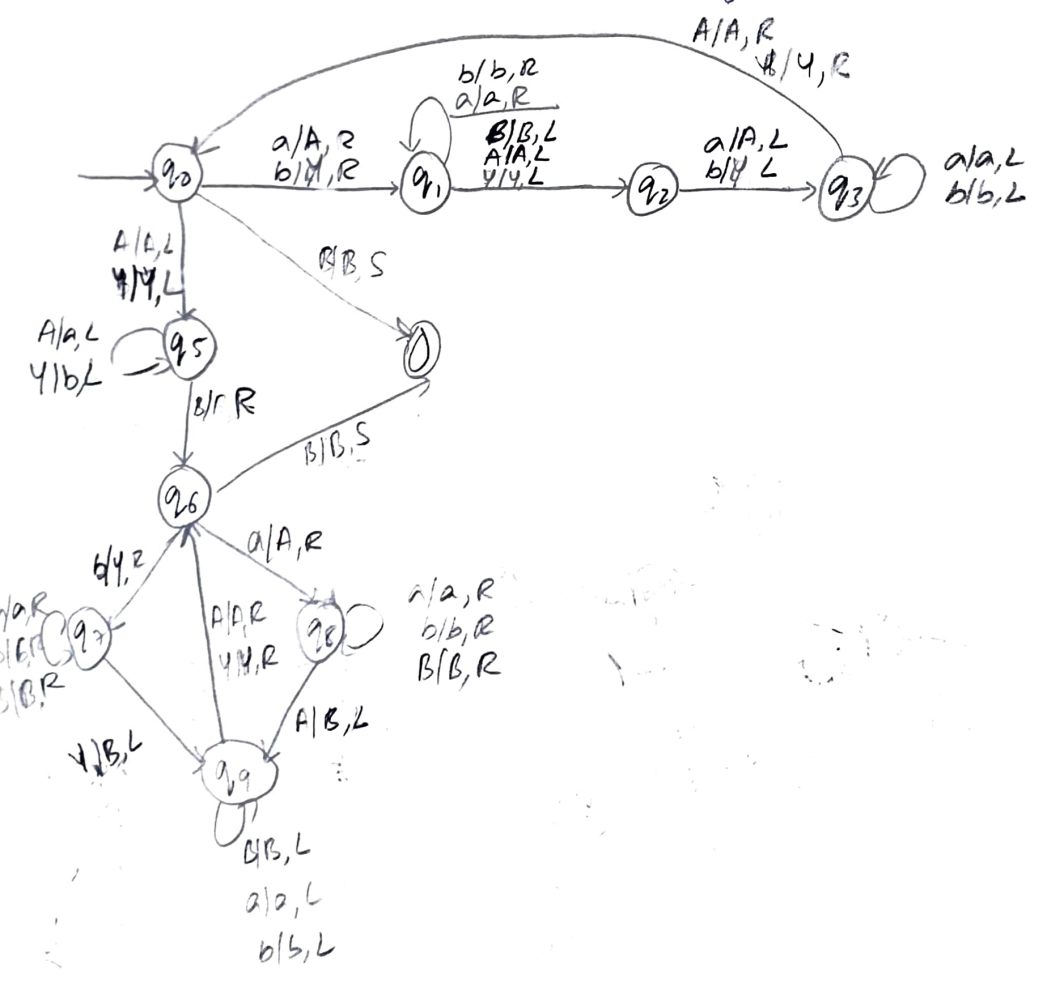 A/A, R
/Y, R
b/b, R
a/a, R
a/A, R
b/Y, R
B/B, L
A/A, L
Y/Y, L
a/A, L
b/Y L
q0
q1
q2
q3
a/a, L
b/b, L
A/A, L
Y/Y, L
B/B, S
A/a, L
Y/b, L
q5
B/ R
B/B, S
q6
b/Y, R
a/A, R
/a, R
B/B, R
q7
A/A, R
Y/Y, R
q8
a/a, R
b/b, R
B/B, R
Y/B, L
A/B, L
q9
B/B, L
a/a, L
b/b, L